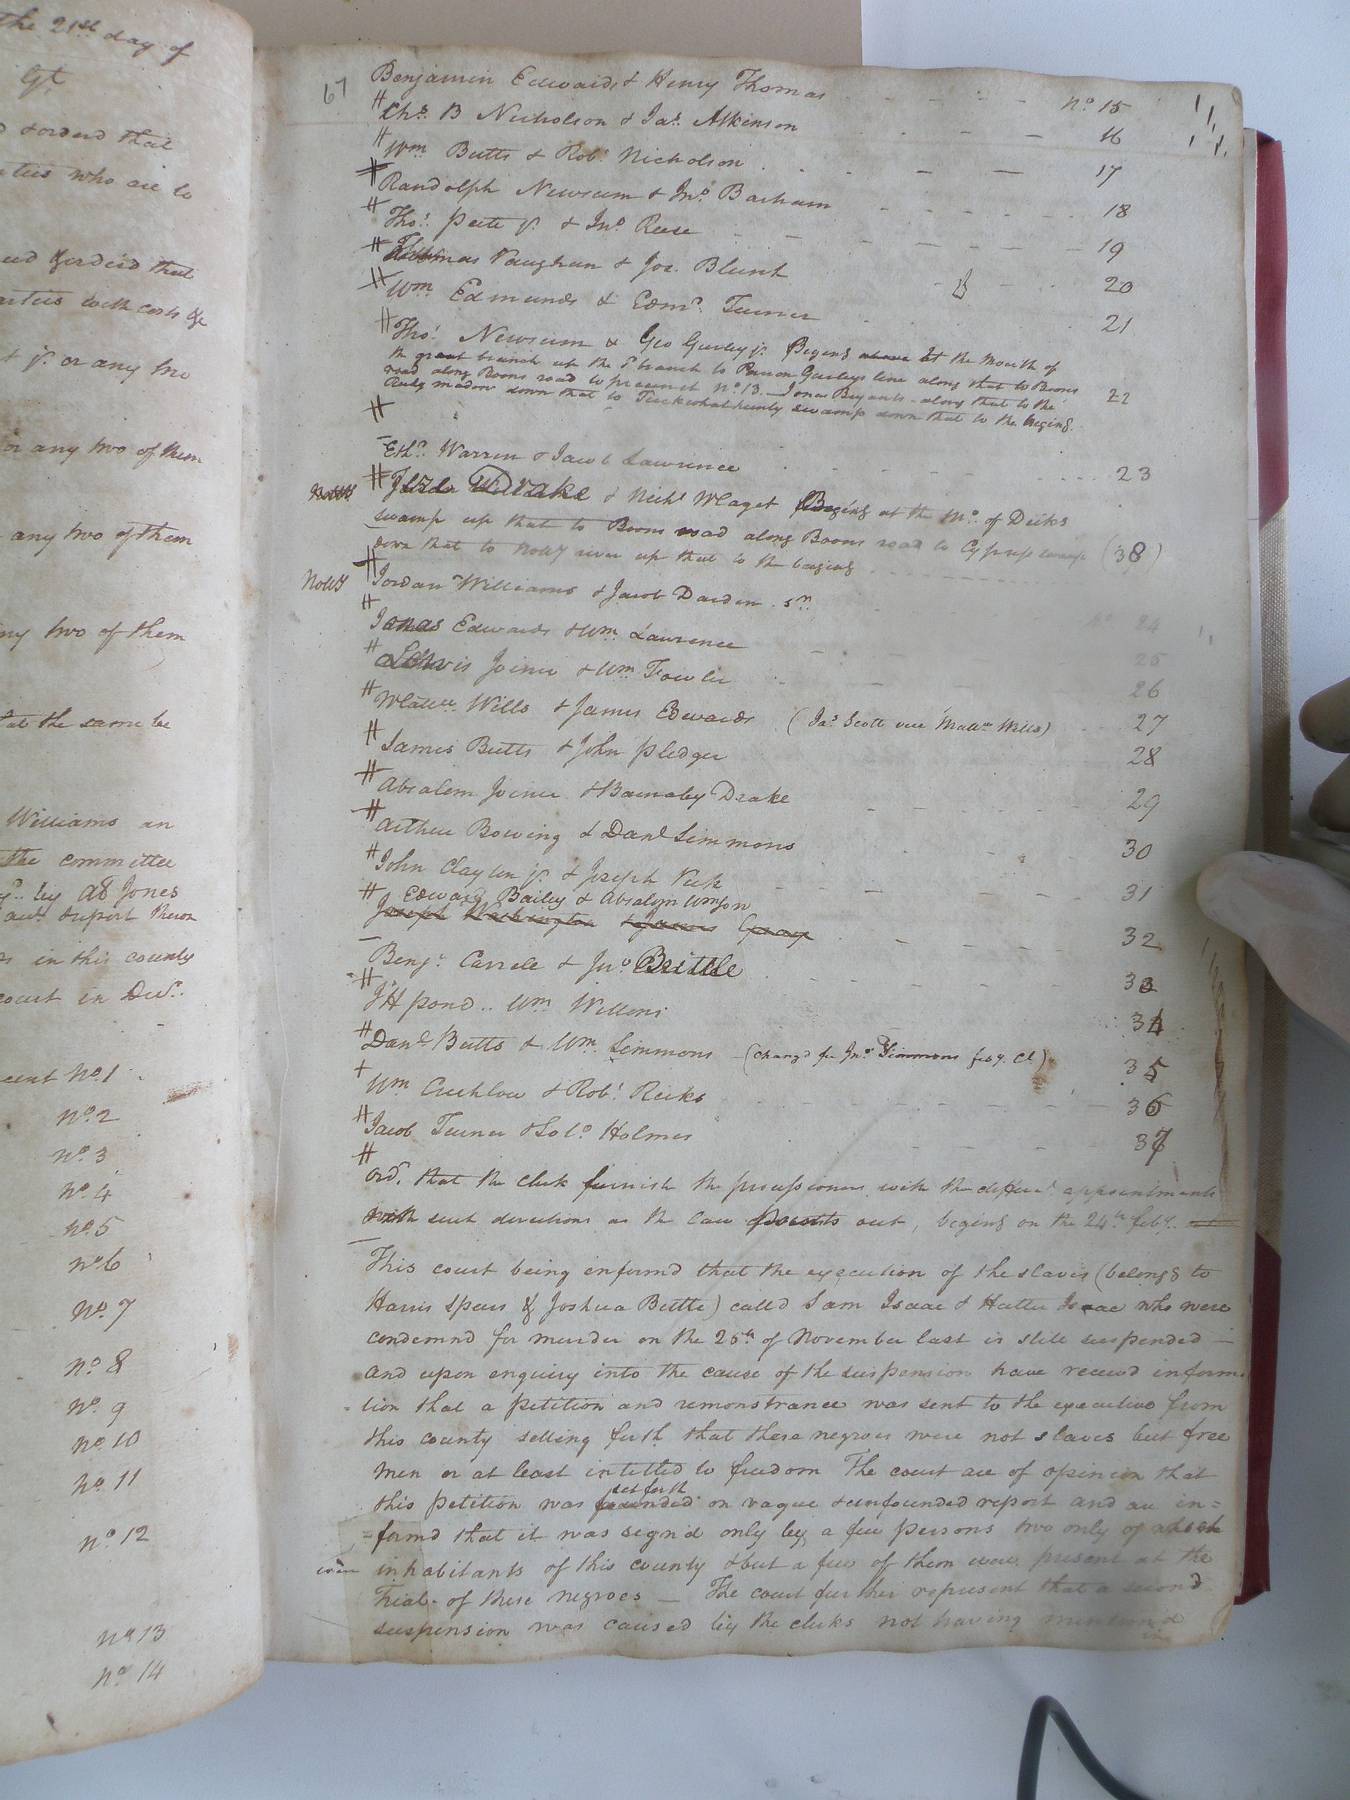 the 21st day of
Gt
& orderd that
ties who are to
ed & orderd that
arties with costs &c
t jr. or any two
or any two of them
any two of them
ny two of them
that the same be
Williams an
the committee
by A8 Jones
and report thereon
in this county
court in Decr.
cent No. 1
No. 2
No. 3
No. 4
No. 5
No 6
No. 7
No. 8
No. 9
No. 10
No. 11
No. 12
No. 13
No. 14
67
Benjamin Edwards & Henry Thomas No. 15
Chs. B Nicholson & Jas. Atkinson 16
Wm Butts & Robt. Nicholson 17
Randolph Newsum & Jno. Barham 18
Thos. Pete jr. & Jno Reese 19
Thomas Vaughan & Jos. Blunt 20
Wm Edmunds & Edmd. Turner 21
Thos. Newsum & Geo Gurley jr. Begins at the mouth of
the great branch up the sd branch to Gurleys line along that to Boons
road along Boons road to precinct No. 13 - Jonas Bryants - along that to the
meadow down that to swamp down that to the begins. 22
Ethd. Warren & Jacob Lawrence 23
Drake & Nichs. Maget Begins at the Mo. of Dicks
swamp up that to Boons road along Boons road to Cypress swamp (38)
down that to Notty river up that to the begins
Notty Jordan Williams & Jacob Darden sr. No. 24
Jonas Edwards & Wm Lawrence 25
Lewis Joiner & Wm Fowler 26
Mattw. Wills & James Edwards (Jas. Scott vice Mattw Wills) 27
James Butts & John Pledger 28
Absalem Joiner & Barnaby Drake 29
Arthur Bowing & Danl Simmons 30
John Clayton jr. & Joseph Vick 31
Edward Bailey & Absalom
Joseph Washington & James Gray 32
Benjn. Carrele & Jno. Brittle 33
JH Pond .. Wm Willons 34
Danl. Butts & Wm. Simmons (changd for Jno. Simmons feby. Ct.) 35
Wm Crichlow & Robt. Ricks 36
Jacob Turner & Solo. Holmes 37
Ord. that the clerk furnish the processioners with the differt. appointments
with such directions as the law points out, begins on the 24th feby.
This court being informd that the execution of the slaves (belongs to
Harris Spears & Joshua Bittle) calld Sam Isaac & Hatter Isaac who were
condemnd for murder on the 25th of November last is still suspended -
And upon enquiry into the cause of the suspension have receivd informa
tion that a petition and remonstrance was sent to the executive from
this county setting forth that these negroes were not slaves but free
men or at least intitled to freedom The court are of opinion that
set forth
this petition was founded on vague & unfounded report and are in=
=formd that it was signd only by a few persons two only of which
were inhabitants of this county & but a few of them were present at the
Trial - of these negroes — The court further represent that a second
suspension was caused by the clerks not having mentiond